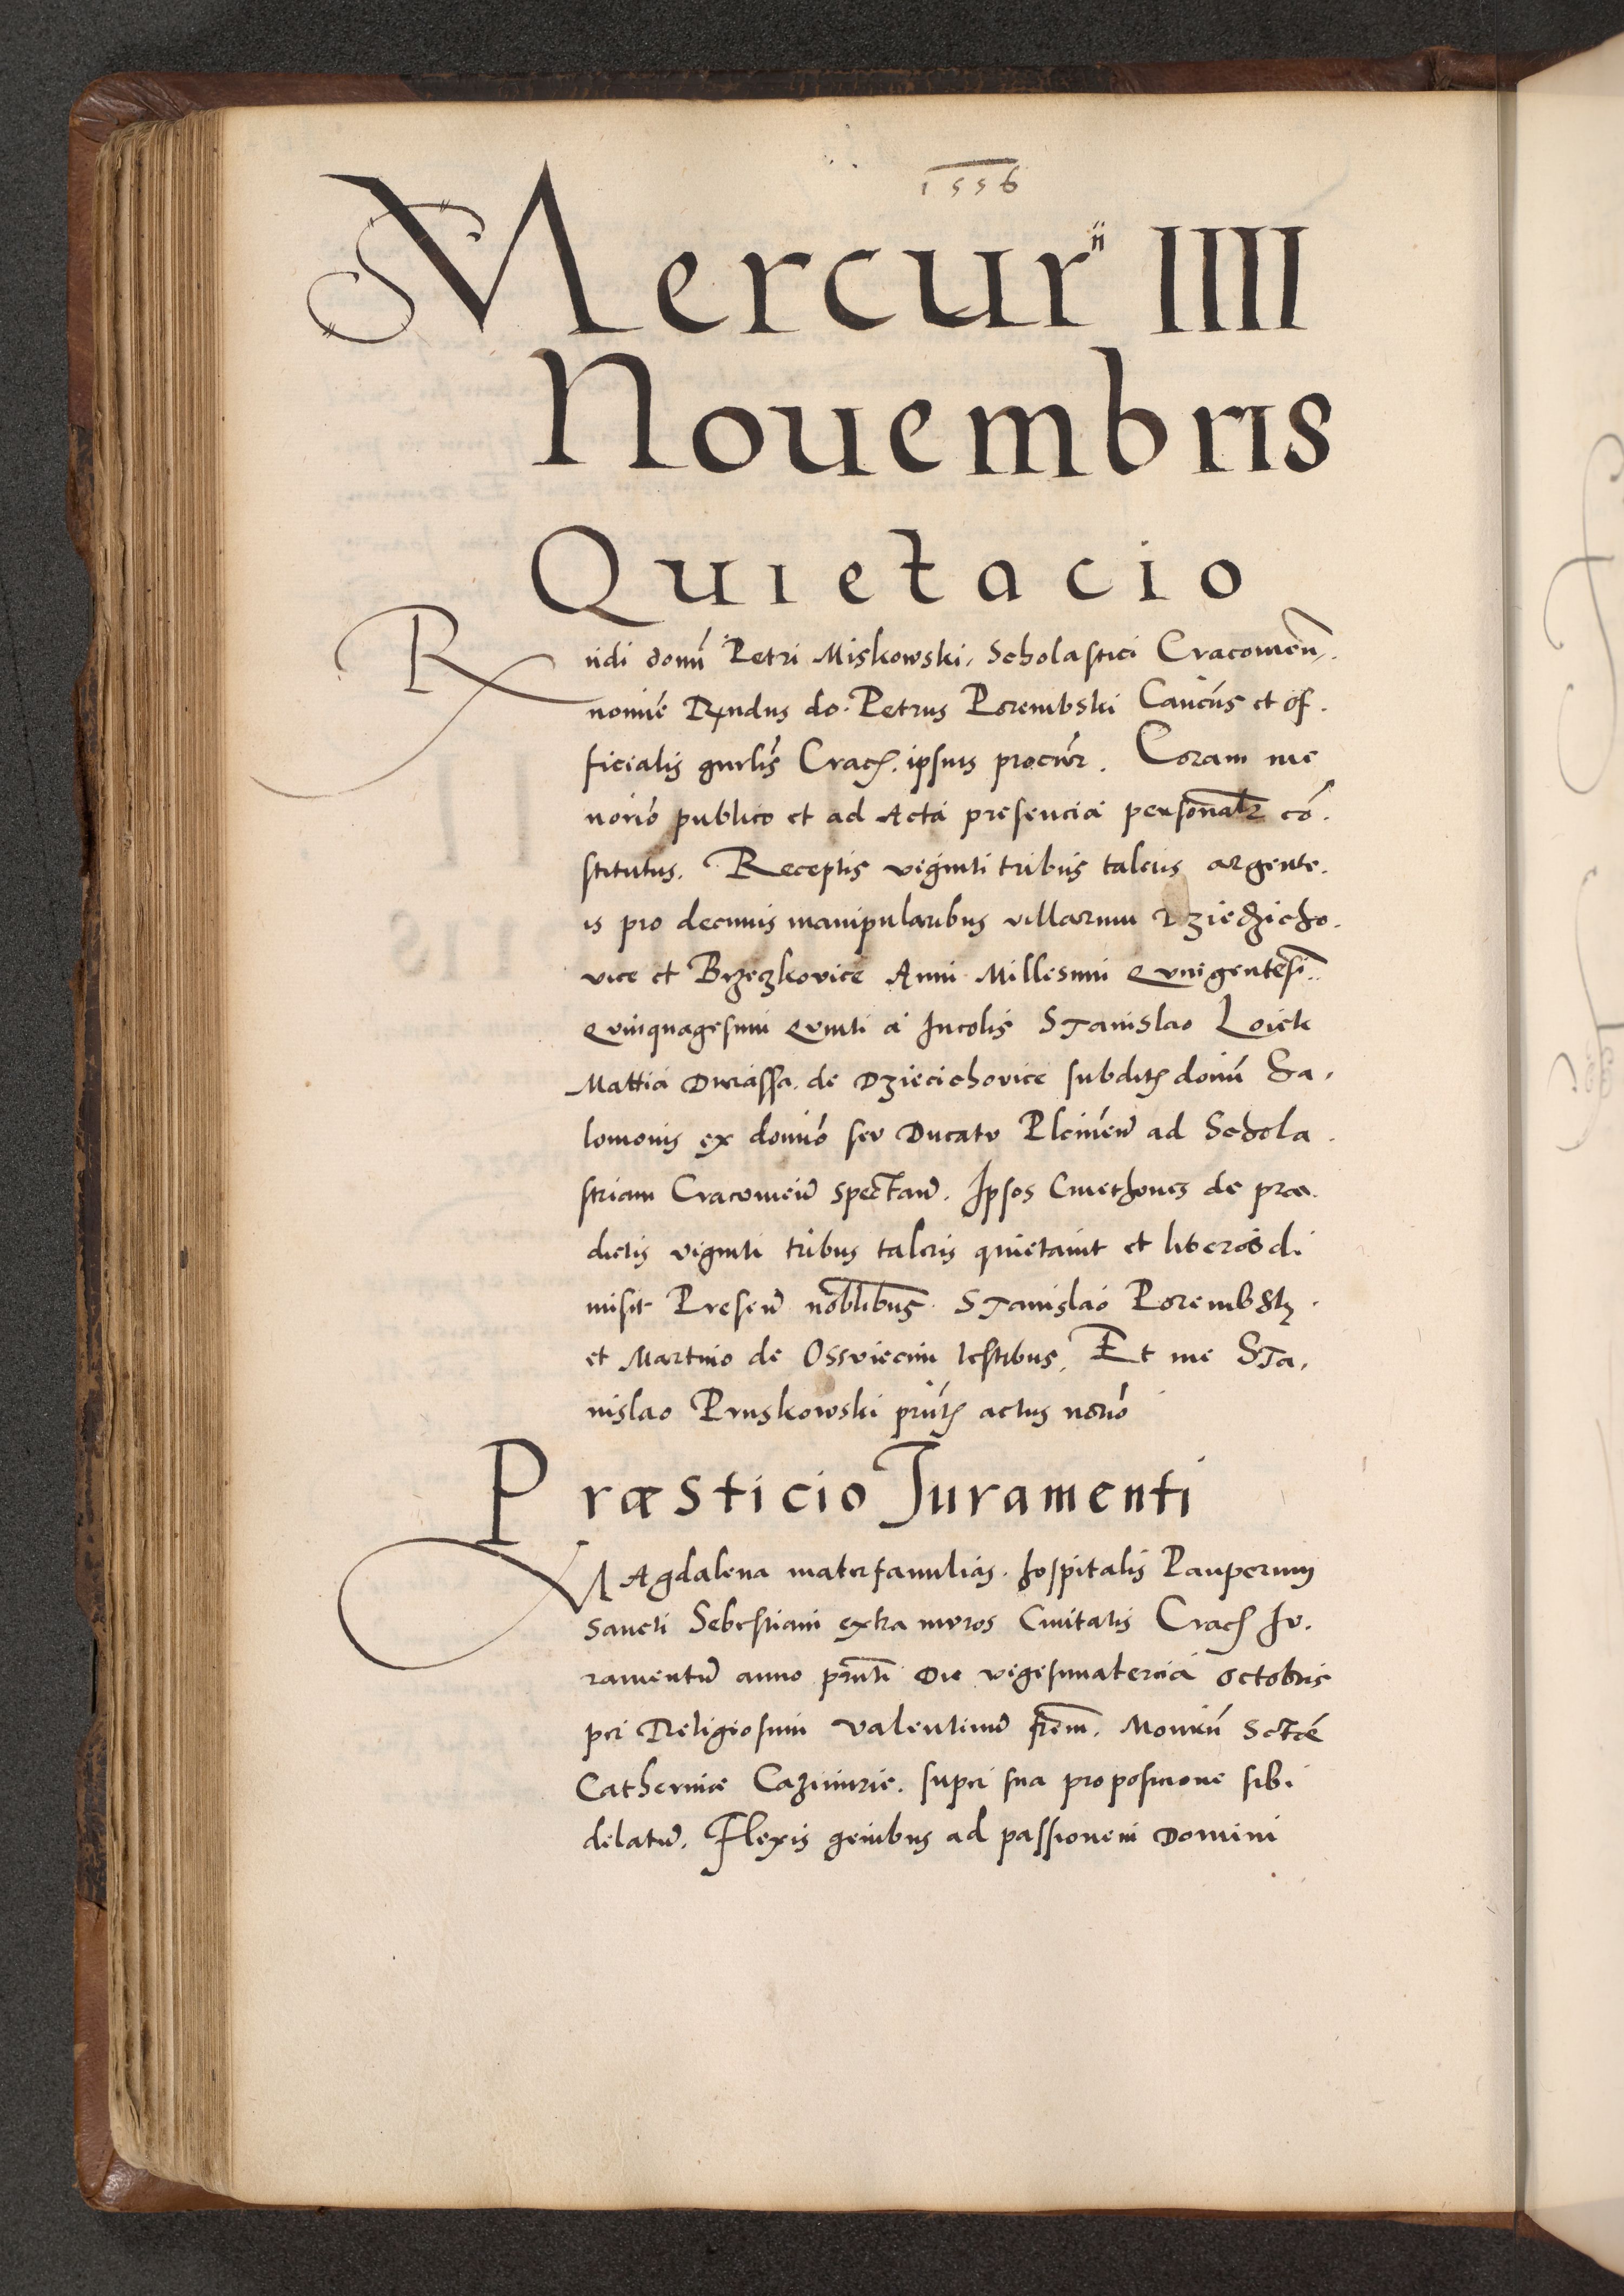 1556
Mercurii IIII
Nouembris
Quietacio
Rndi domī Petri Miskowski, Scholastici Cracouien̄.
nomīe Rndus do. Petrus Porembski Canćus et of.
ficialis gnrlis Crac. ipsius procur̄. Coram me
norio publico et ad Acta presencia personalr có.
stitutus. Receptis viginti tribus taleris argente.
is pro decimis manipularibus villarum Dzieczicho.
vice et Brzeczkovice Anni Millesimi Qvingentesi..
Qvinquagesimi Qvinti a Incolis STanislao Loiek
Mattia Dwiassa. de Dziecichovice subditis domī Sa.
lomonis ex domio sev Ducatv Plcinen̄ ad Schola.
striam Cracouien̄ specTan̄. Ipsos Cmethones de præ.
dictis viginti tribus taleris quietauit et liberos di
misit Presen̄ noblibus. STanislao Porembsky.
et Martino de Ossviecim testibus. Et me STa.
nislao Pruskowski prntis actus norio
Præsticio Juramenti
MAgdalena materfamilias. hospitalis Pauperum
Sancti Sebestiani extra mvros Ciuitatis Crac Iv.
ramentū anno prnti Die vigesimatercia octobris
per Religiosum Valentinū frem. Monićū Sctæ
Catherinæ Cazimirie. super sua proposicione sibi
delatū. Flexis genibus ad passionem Domini